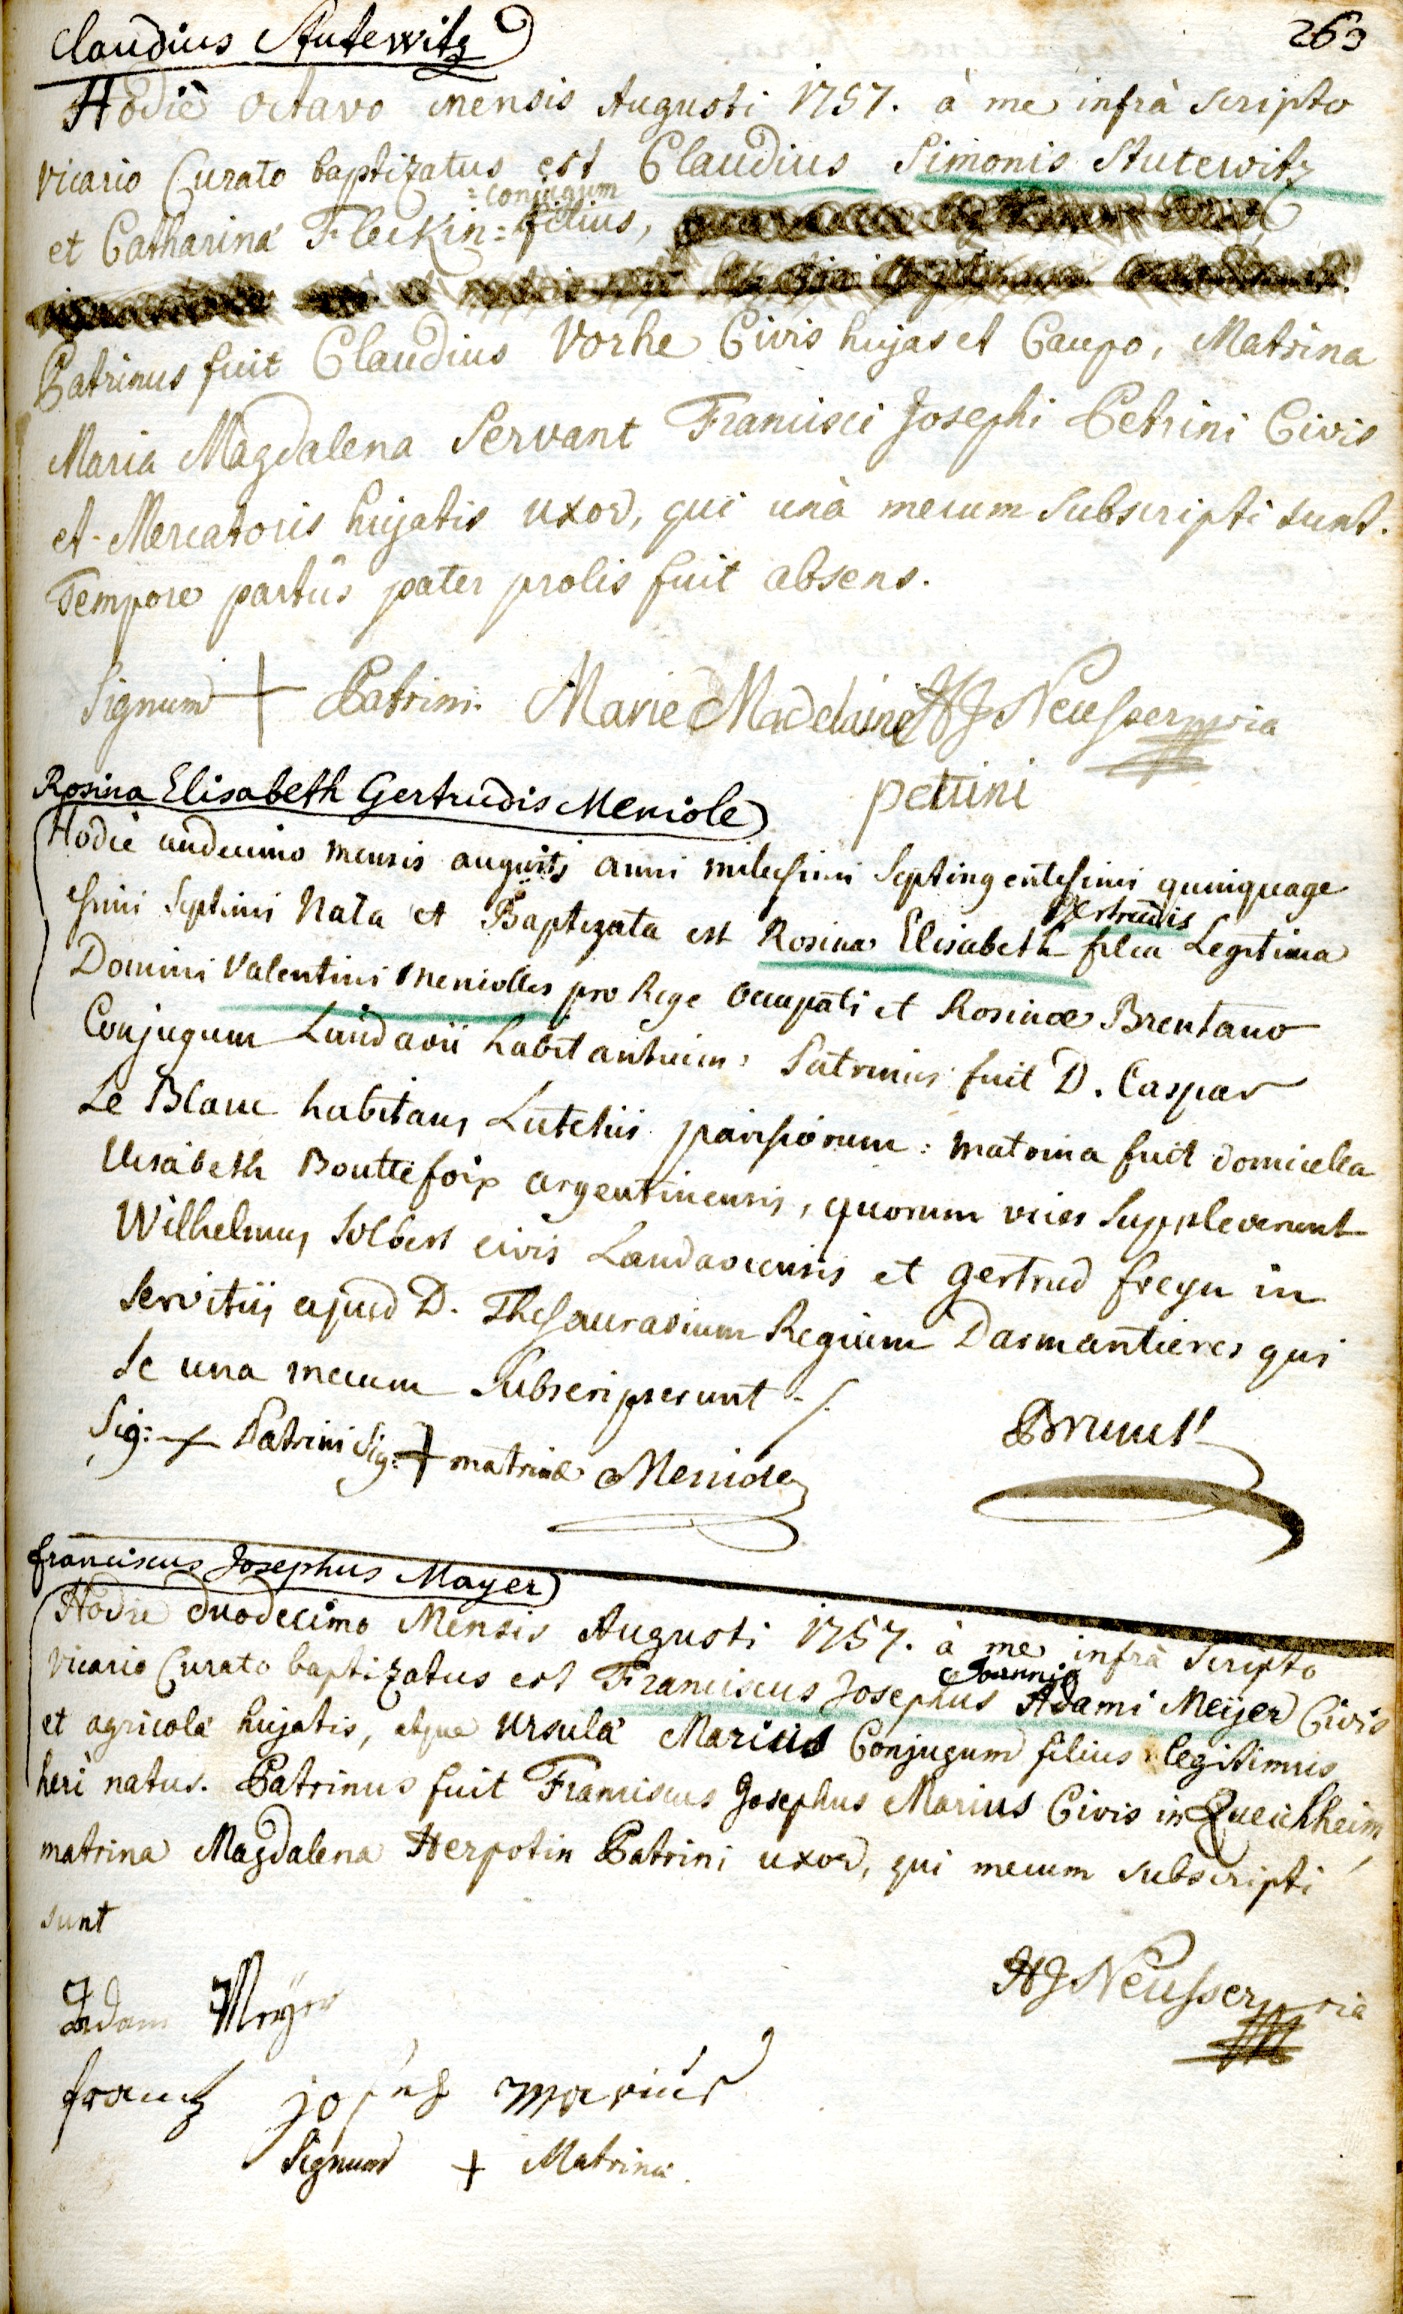 Claudius Stutewitz
263
Hodiè octavo mensis Augusti 1757. à me infrà scripto
vicario Curato baptizatus est Claudius Simonis Stutewitz
= conjugum
et Catharinâ Fleckin = filius,
Patrinus fuit Claudius Vorhe Civis hujas et Caupo, Matrina
Maria Magdalena Servant Francisci Josephi Petrini Civis
et Mercatoris hujatis uxor, qui unà mecum subscripti sunt.
Tempore partûs pater prolis fuit absens.
Signum + Patrini Marie Madelaine HJ Neusser
pettini
Rosina Elisabeth Gertrudis Meniole
Hodie undecimo mensis augusti anni milesimi septingentesimi quinquage
simi septimi Nata et Baptizata est Rosina Elisabeth Gertrudis filia Legitima
Domini Valentini Meniolles pro Rege occupati et Rosinæ Brentano
Conjugum Landavii habitantium: Patrinus fuit D. Caspar
Le Blanc habitans Lutetiis parisiorum: matrina fuit domicella
Elisabeth Bouttefoix argentinensis, quorum vices suppleverunt
Wilhelmus Solbert civis Landaviensis et Gertrud freyn in
servitiis ejusd D. Thesaurarium Regium Darmantieres qui
se una mecum subscripserunt
Sig: + Patrini Sig: + matrinæ Meniole
Brunet
franciscus Josephus Mayer
Hodie duodecimo Mensis Augusti 1757. à me infrà scripto
vicario Curato baptizatus est Franciscus Josephus Joannis Adami Meijer Civis
et agricolâ hujatis, atque Ursulâ Marius Conjugum filius legitimus
heri natus. Patrinus fuit Franciscus Josephus Marius Civis in Queichheim,
matrina Magdalena Herpotin Patrini uxor, qui mecum subscripti
sunt
HJ Neusser
Adam Meyer
frantz josef marius
Signum + Matrinæ.